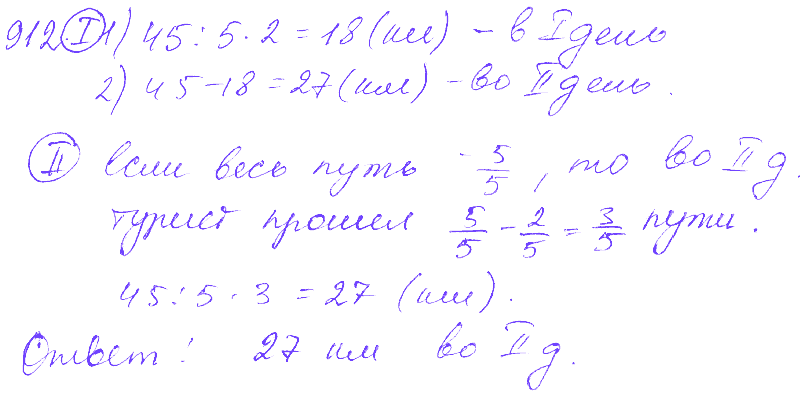 912. I 1) 45 : 5 · 2 = 18 (км) – в I день
2) 45 – 18 = 27 (км) – во II день.
II Если весь путь – 5/5, то во II д.
турист прошел 5/5 – 2/5 = 3/5 пути.
45 : 5 · 3 = 27 (км).
Ответ: 27 км во II д.